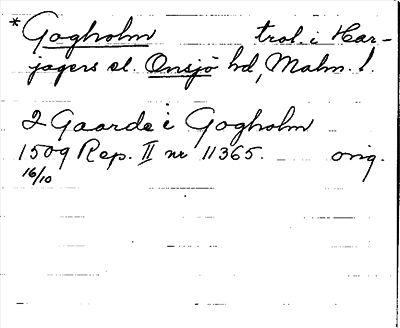 *Gogholm trol. i Har-
jagers el. Onsjö hd, Malm. l.
2 Gaarde i Gogholm
1509 Rep. II nr 11365. orig.
16/10